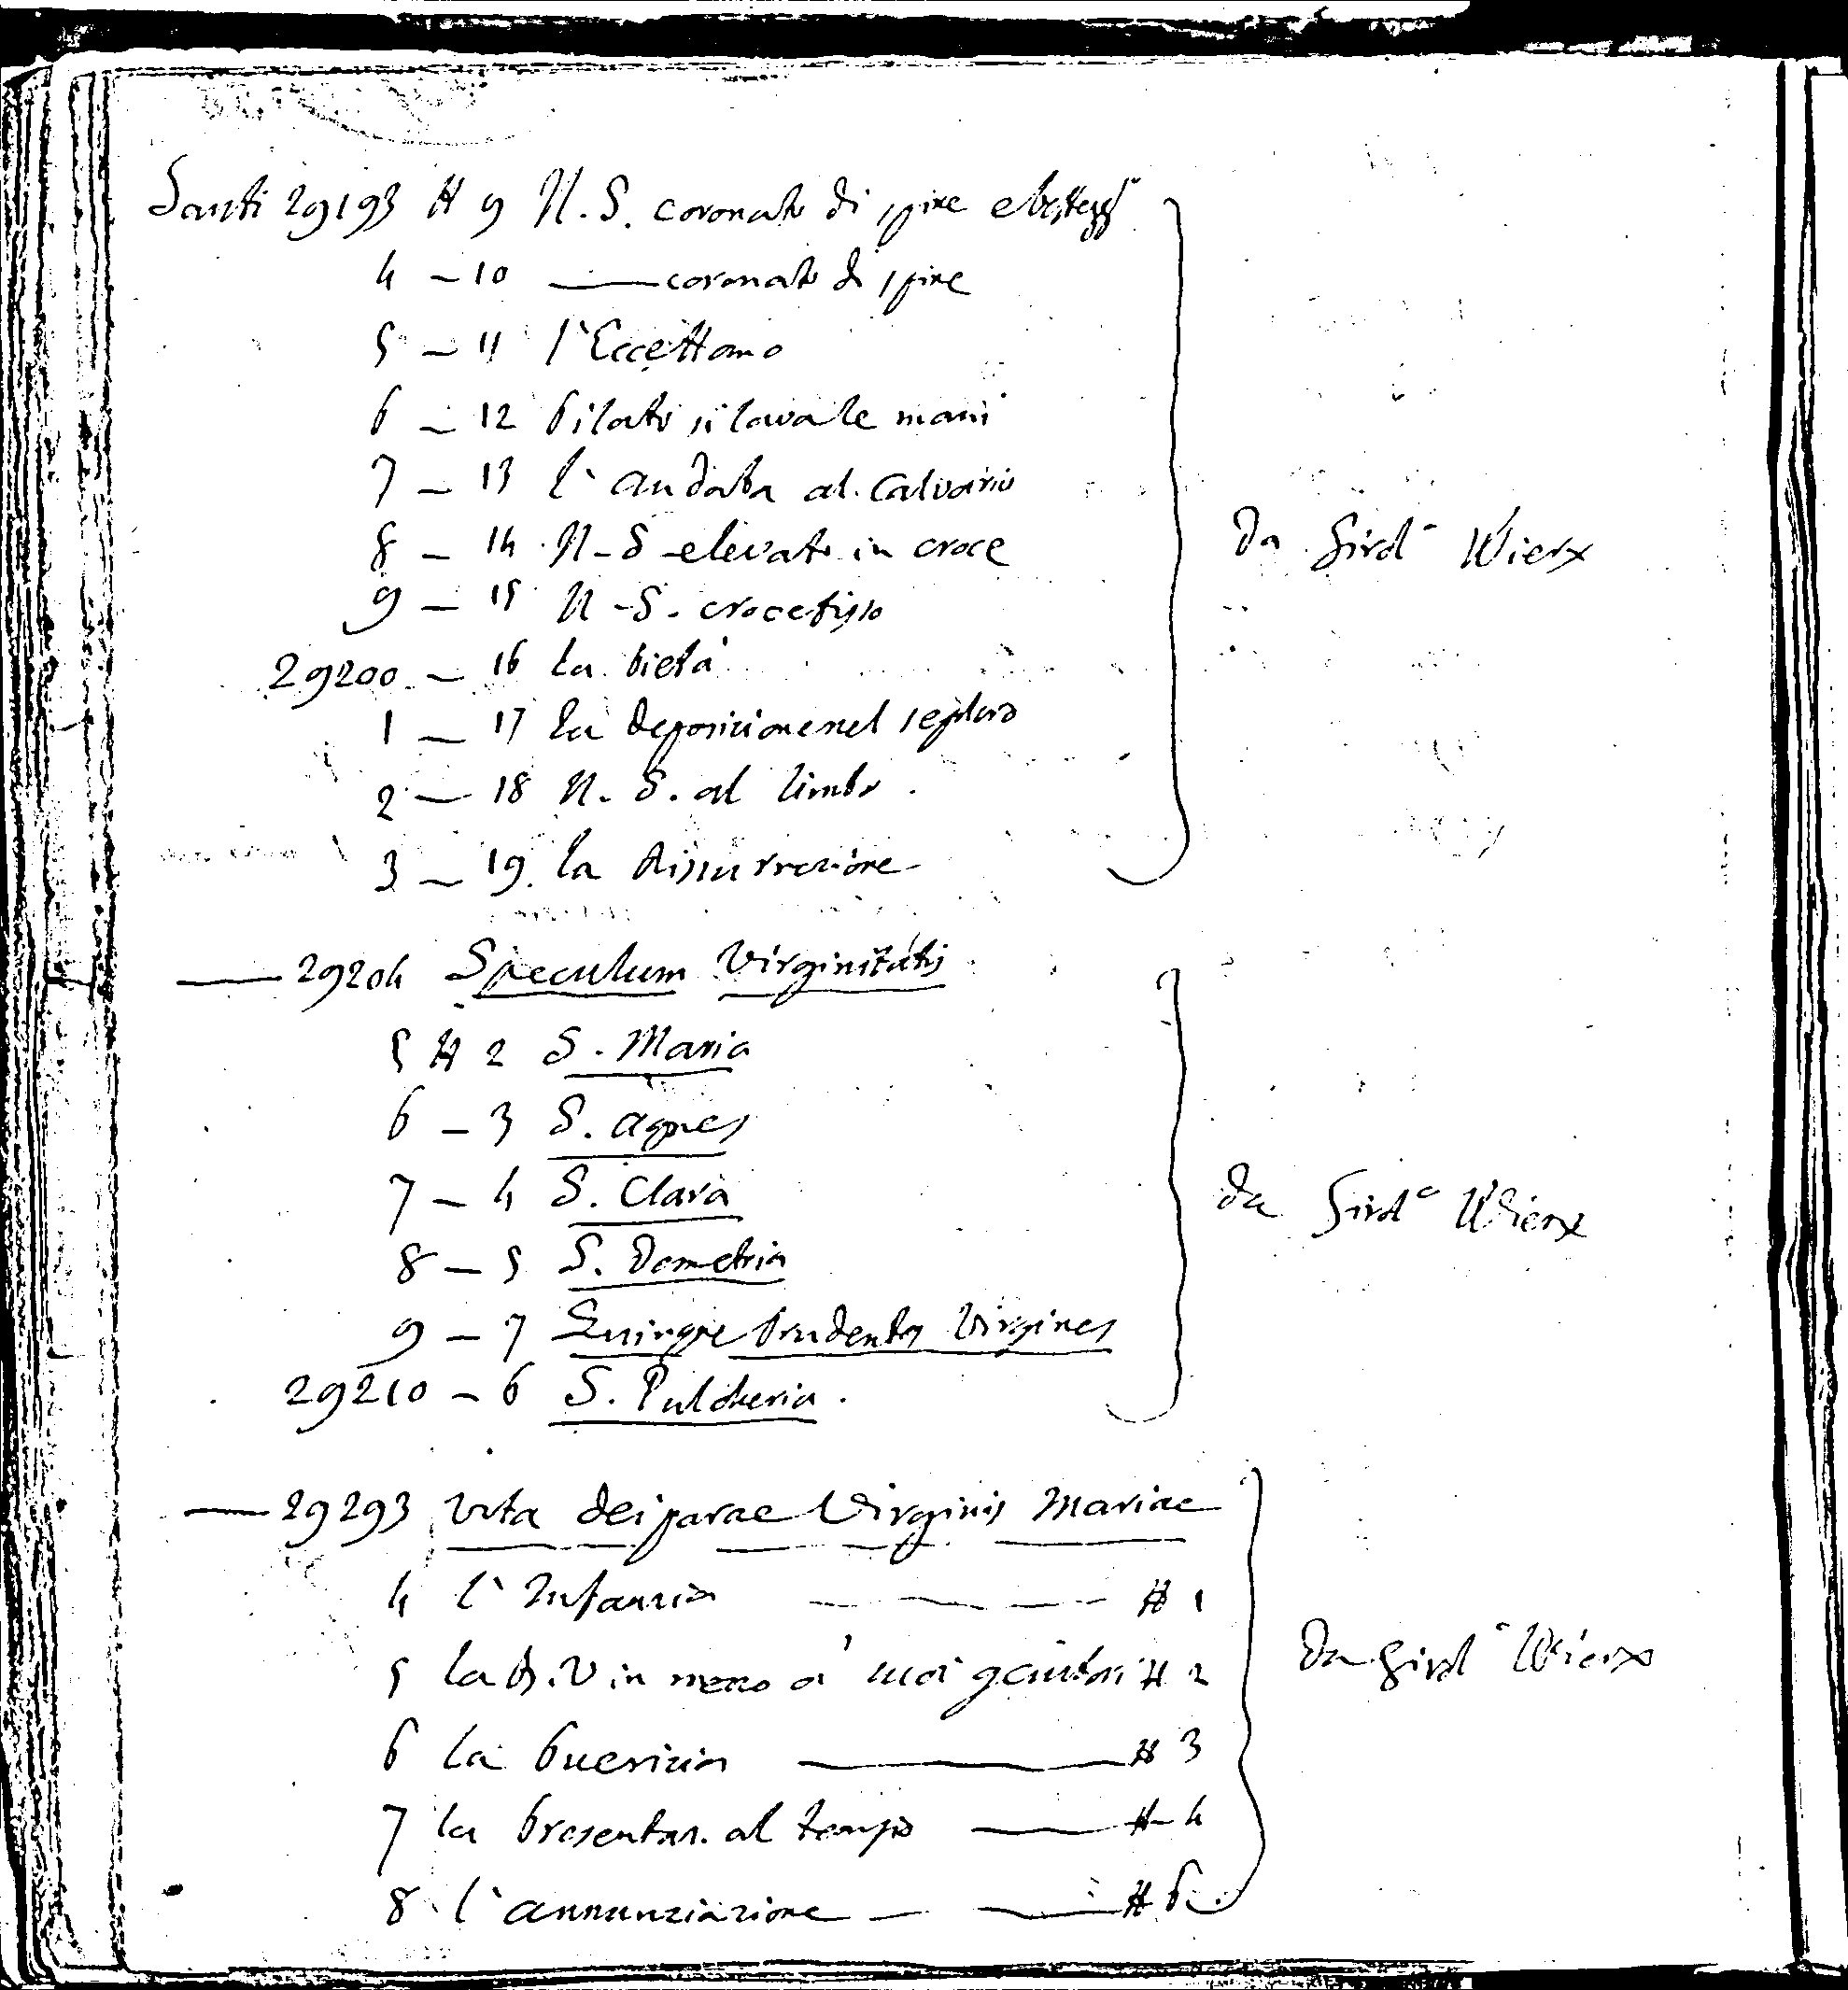 Santi 29193 # 9 N. S. coronato di spine e besteggo
4 – 10 —— coronato di spine
5 – 11 l'EcceHomo
6 – 12 Pilato si lava le mani
7 – 13 l'andata al Calvario
8 – 14 N – S – elevato in croce da Girol° Wierx
9 – 15 N – S. crocefisso
29200 – 16 La Pietà
1 – 17 La deposizione nel sepolcro
2 – 18 N. S. al Limbo.
3 – 19. La Rissurrezione
—— 29204 Speculum Virginitatis
5 # 2 S. Maria
6 – 3 S. Agnes
7 – 4 S. Clara da Girol° Wierx
8 – 5 S. Demetria
9 – 7 Quinque Prudentes Virgines
29210 – 6 S. Pulcheria.
—— 29293 Vita Deiparae Virginis Mariae
4 l'Infanzia —— # 1
5 la B. V in mezzo a' suoi genitori # 2 da Girol° Wierx
6 la Puerizia —— # 3
7 la Presentaz. al tempio —— # 4
8 l'annunziazione —— # 6.